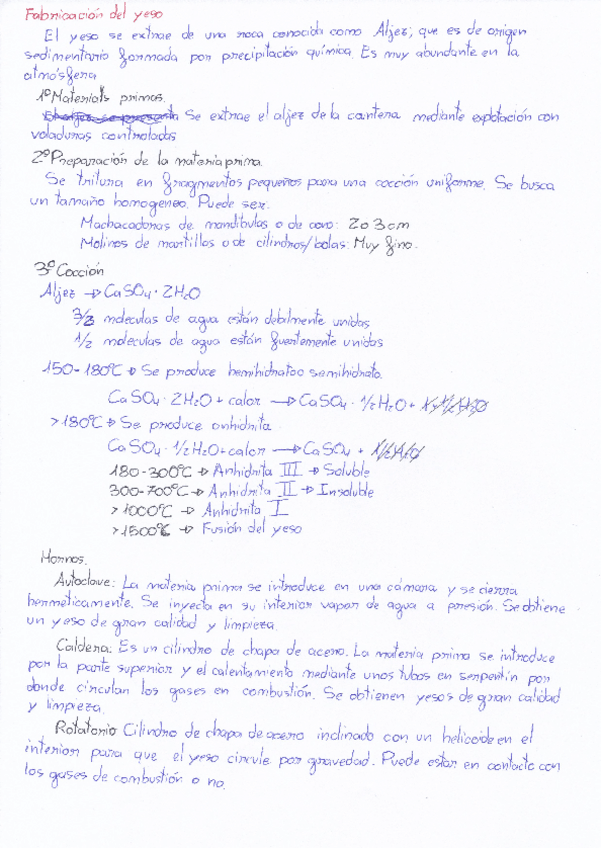 Fabricación del yeso
El yeso se extrae de una roca conocida como Aljez; que es de origen
sedimentario formada por precipitación química. Es muy abundante en la
atmósfera
1º Materials primas.
Se extrae el aljez de la cantera mediante explotación con
voladuras controladas
2º Preparación de la materia prima.
Se tritura en fragmentos pequeños para una cocción uniforme. Se busca
un tamaño homogeneo. Puede ser:
Machacadoras de mandíbulas o de cono: 2 o 3 cm
Molinos de martillos o de cilindros/bolas: Muy fino.
3º Cocción
Aljez → CaSO4 · 2H2O
3/2 moleculas de agua están debilmente unidas
1/2 moleculas de agua están fuertemente unidas
150-180ºC → Se produce hemihidrato o semihidrato.
CaSO4 · 2H2O + calor → CaSO4 · 1/2 H2O + 1 y 1/2 H2O
>180ºC → Se produce anhidrita
CaSO4 · 1/2 H2O + calor → CaSO4 + 1/2 H2O
180-300ºC → Anhidrita III → Soluble
300-700ºC → Anhidrita II → Insoluble
> 1000ºC → Anhidrita I
>1500ºC → Fusión del yeso
Hornos.
Autoclave: La materia prima se introduce en una cámara y se cierra
hermeticamente. Se inyecta en su interior vapor de agua a presión. Se obtiene
un yeso de gran calidad y limpieza.
Caldera: Es un cilindro de chapa de acero. La materia prima se introduce
por la parte superior y el calentamiento mediante unos tubos en serpentín por
donde circulan los gases en combustión. Se obtienen yesos de gran calidad
y limpieza.
Rotatorio Cilindro de chapa de acero inclinado con un helicoide en el
interior para que el yeso circule por gravedad. Puede estar en contacto con
los gases de combustión o no.